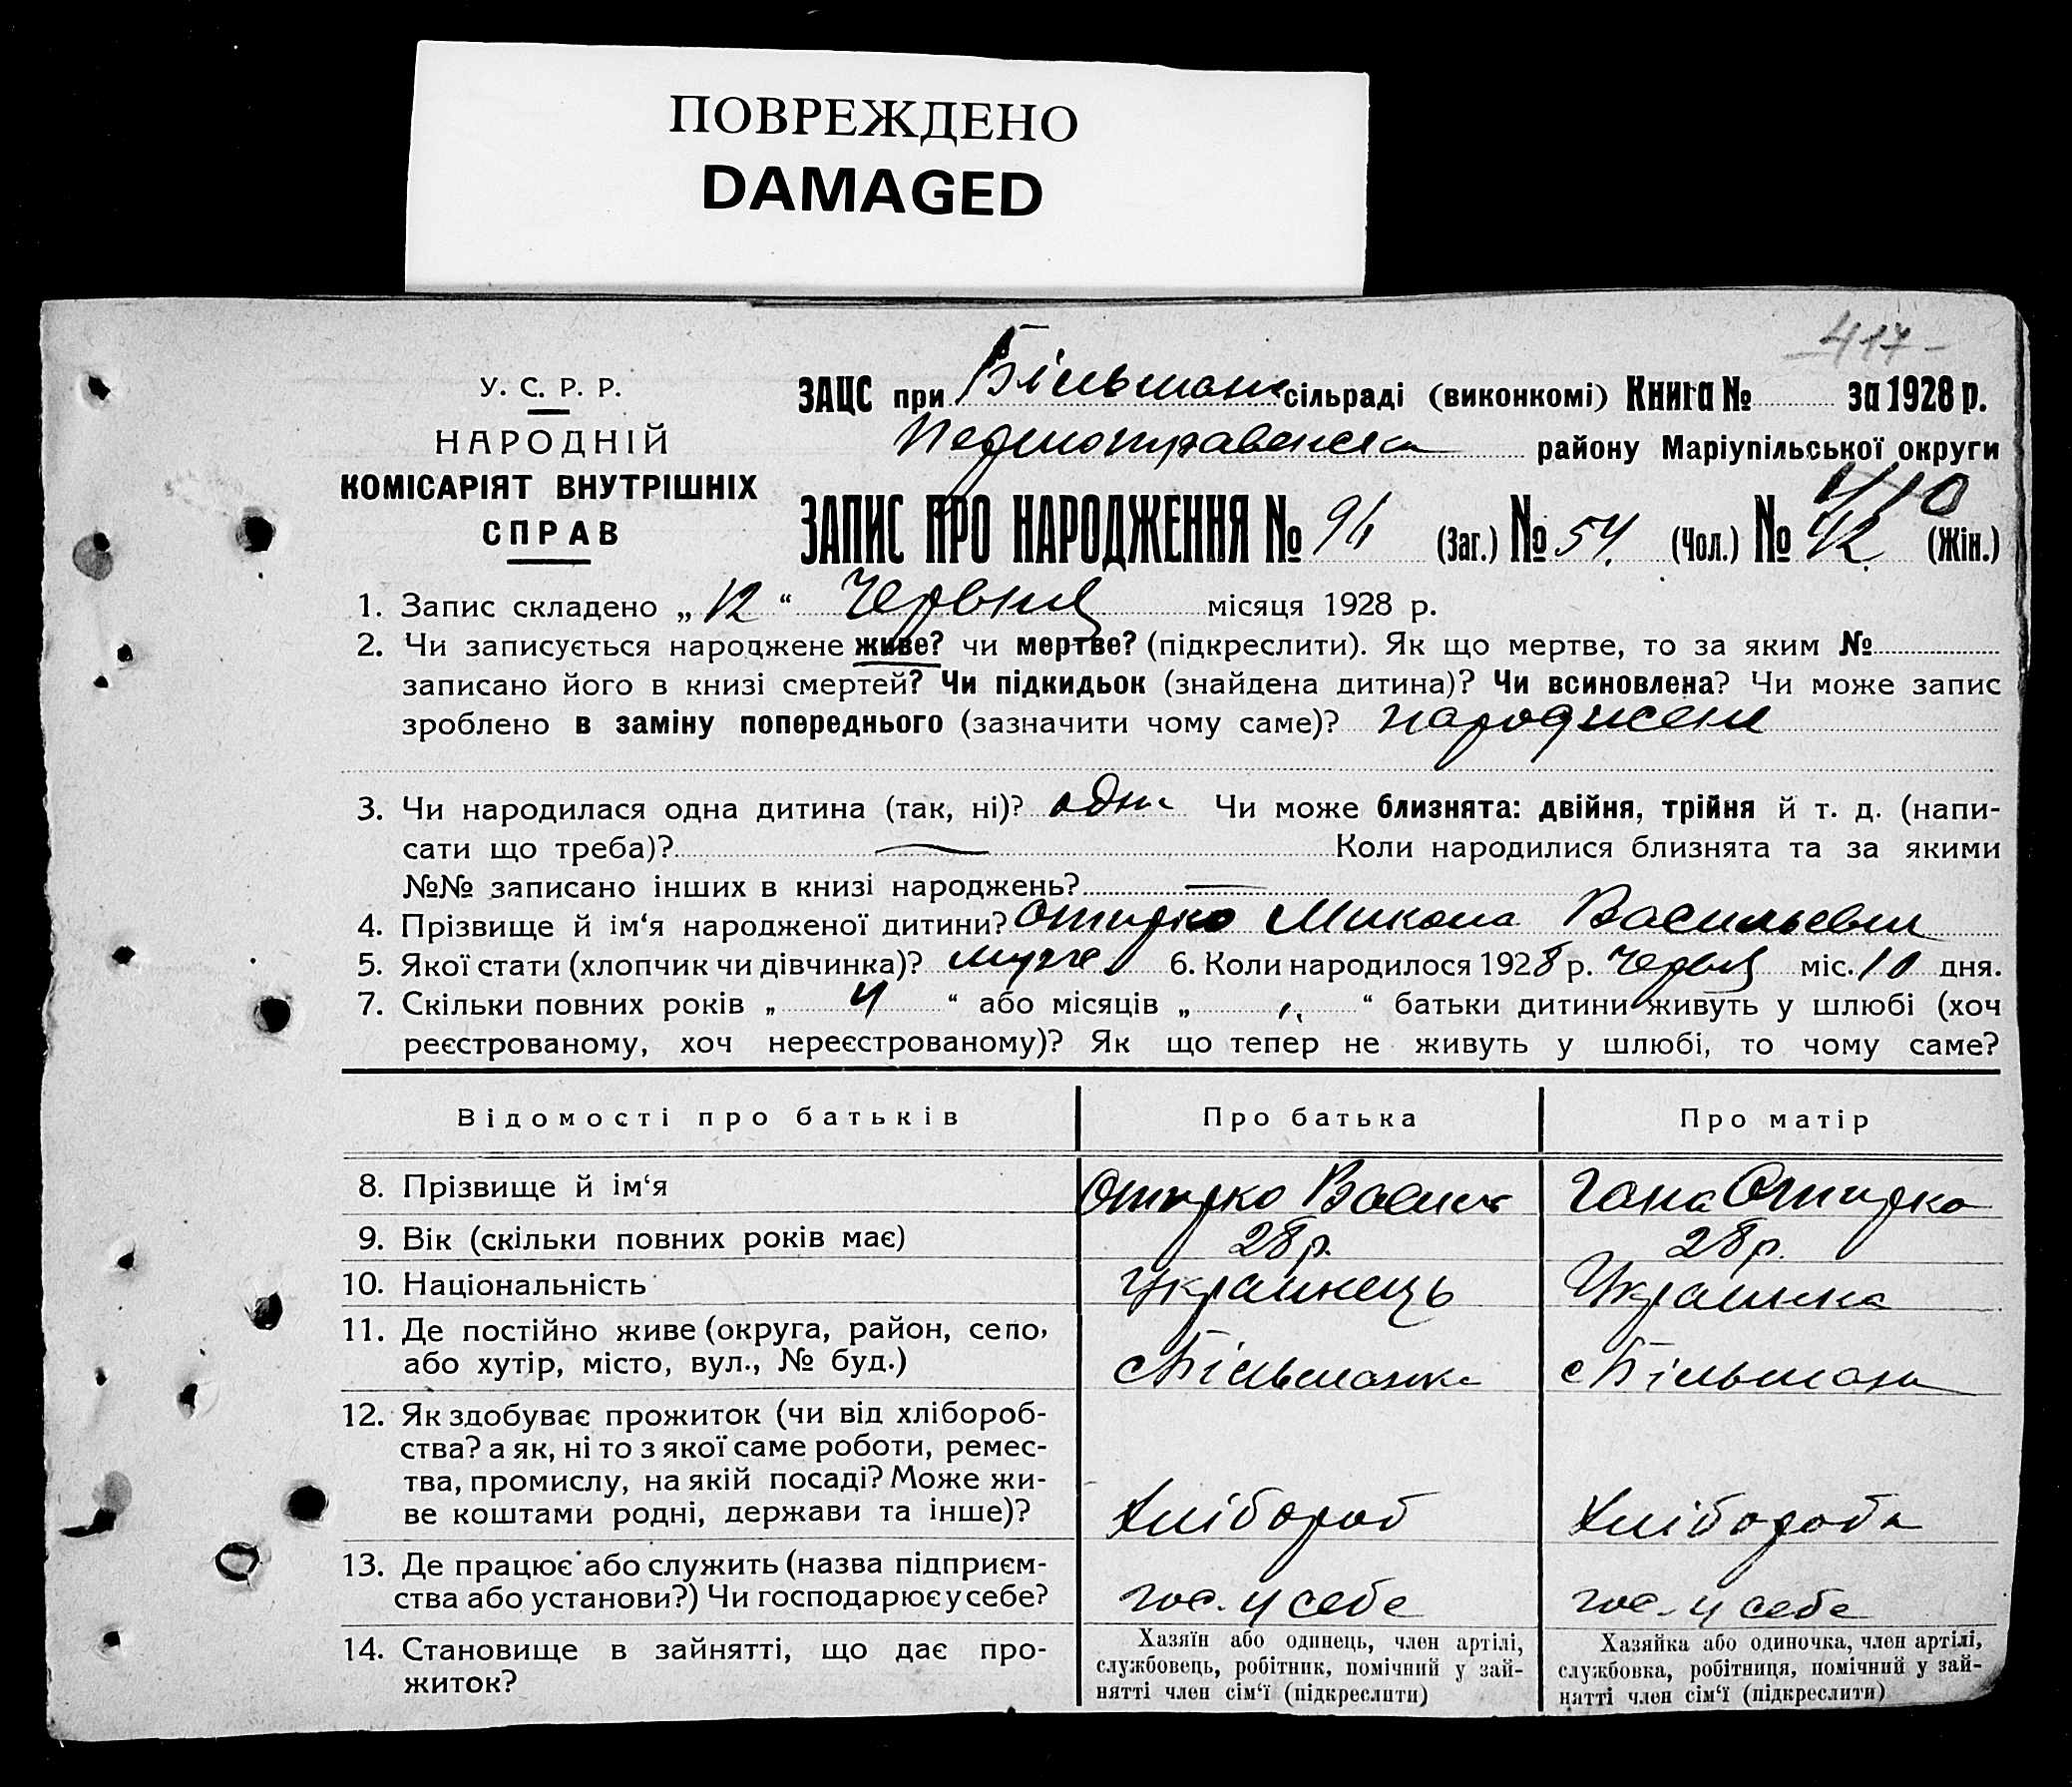 ПОВРЕЖДЕНО
DAMAGED
417-
У. С. Р. Р.
НАРОДНІЙ
КОМІСАРІЯТ ВНУТРІШНІХ
СПРАВ
ЗАЦС при Більманк сільраді (виконкомі) Книга № за 1928 р.
району Маріупільської округи
410
ЗАПИС ПРО НАРОДЖЕННЯ № 96 (Заг.) № 54 (Чол.) № 42 (Жін.)
1. Запис складено „ 12 “ Червня місяця 1928 р.
2. Чи записується народжене живе? чи мертве? (підкреслити). Як що мертве, то за яким №
записано його в книзі смертей? Чи підкидьок (знайдена дитина)? Чи всиновлена? Чи може запис
зроблено в заміну попереднього (зазначити чому саме)? народжене
3. Чи народилася одна дитина (так, ні)? одна Чи може близнята: двійня, трійня й т. д. (напи-
сати що треба)? — Коли народилися близнята та за якими
№№ записано інших в книзі народжень? —
4. Прізвище й ім‘я народженої дитини? Отирко Микола Васильевич
5. Якої стати (хлопчик чи дівчинка)? муже 6. Коли народилося 1928 р. Червня міс. 10 дня.
7. Скільки повних років „ 4 “ або місяців „ “ батьки дитини живуть у шлюбі (хоч
реєстрованому, хоч нереєстрованому)? Як що тепер не живуть у шлюбі, то чому саме?
Відомості про батьків Про батька Про матір
8. Прізвище й ім‘я Отирко Василь Гана Отирко
9. Вік (скільки повних років має) 28 р. 28 р.
10. Національність Украинець Украинка
11. Де постійно живе (округа, район, село,
або хутір, місто, вул., № буд.) с Більманка с Більманка
12. Як здобуває прожиток (чи від хлібороб-
ства? а як, ні то з якої саме роботи, ремес-
тва, промислу, на якій посаді? Може жи-
ве коштами родні, держави та інше)? Хлібороб Хлібороба
13. Де працює або служить (назва підприєм-
ства або установи?) Чи господарює у себе? гос. у себе гос. у себе
14. Становище в зайнятті, що дає про-
житок?
Хазяїн або одинець, член артілі,
службовець, робітник, помічний у зай-
нятті член сім‘ї (підкреслити)
Хазяйка або одиночка, член артілі,
службовка, робітниця, помічний у зай-
нятті член сім‘ї (підкреслити)